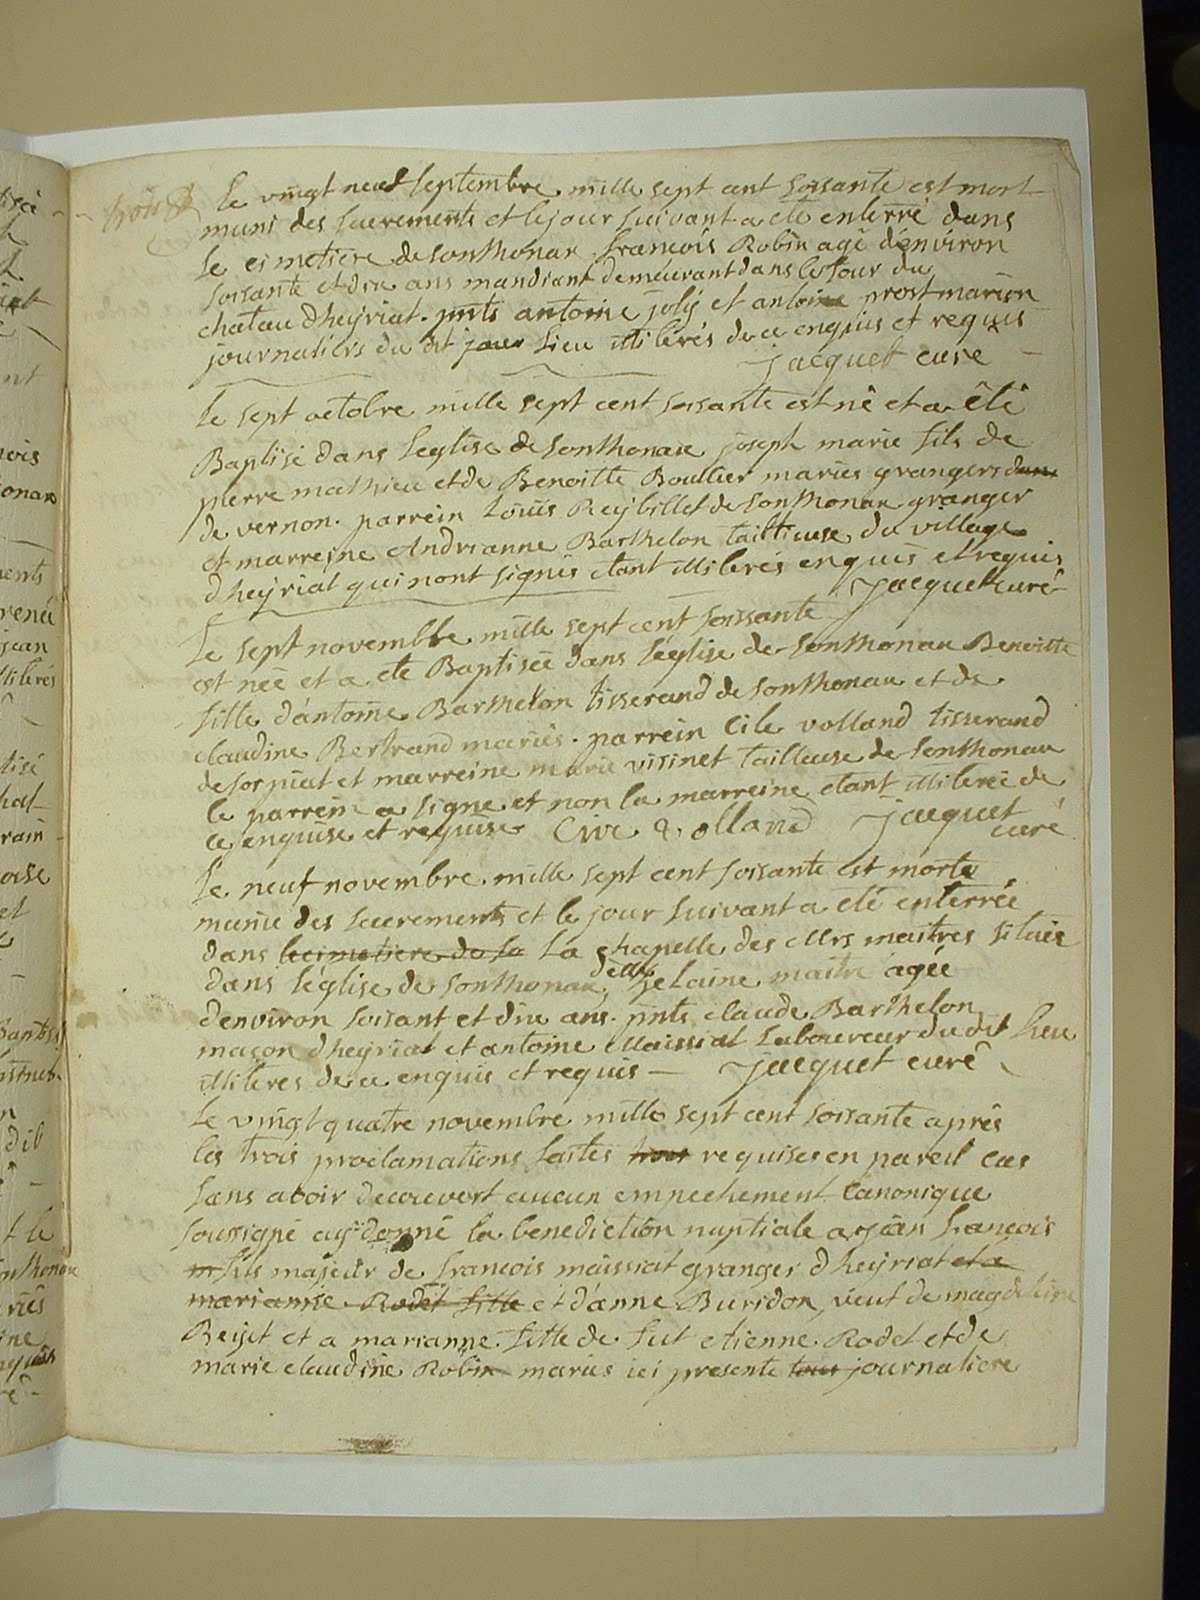 Le vingt neuf septembre mille sept cent soisante est mort
muni des sacrements et le jour suivant a eté enterré dans
le cimetiere de Sonthonax francois Robin agé d'environ
soisante et dix ans mandiant demeurant dans le four du
chateau dheÿriat. pnts antoine jolÿ et antoine prost marion
journaliers du dit jour lieu illiterés de ce enquis et requis
jacquet curé
Le sept octobre mille sept cent soisante est né et a êté
Baptisé dans leglise de Sonthonax joseph marie fils de
pierre mathieu et de Benoitte Boullier mariés grangers dans
de vernon. parrein Louis Reÿbillet de Sonthonax granger
et marreine Andrianne Barthelon tailleuse du village
dheÿriat qui nont signés etant illiterés enquis et requis
Jacquet curé
Le sept novembre mille sept cent soissante
est née et a ete Baptiseé dans léglise de Sonthonax Benoitte
fille d'antoine Barthelon tisserand de Sonthonax et de
claudine Bertrand mariés. parrein Cile volland tisserand
de Sorpiat et marreine marie visinet tailleuse de Sonthonax
le parrein a signe et non la marreine etant illitereé de
ce enquise et requise Cive volland jacquet
curé
Le neuf novembre mille sept cent soisante est morte
munie des sacrements et le jour suivant a eté enterrée
dans le cimetiere de la La chapelle des Mrs maitres située
dans l'église de Sonthonax, delle gelaine maitre ageé
denviron soisant et dix ans. pnts claude Barthelon
maçon dheÿriat et antoine Maissiat Laboureur du dit lieu
illiteres de ce enquis et requis — Jacquet curé
Le vingt quatre novembre mille sept cent soisante aprés
les trois proclamations faites requises en pareil cas
sans avoir decouvert aucun empechement canonique
soussigné donné la benediction nuptiale a jean francois
fils majeur de francois maissiat granger dheÿriat et a
marianne Rodet fille et d'anne Buridon, veuf de magdeleine
Beÿet et a marianne fille de fut etienne Rodet et de
marie claudine Robin mariés ici presente journaliere